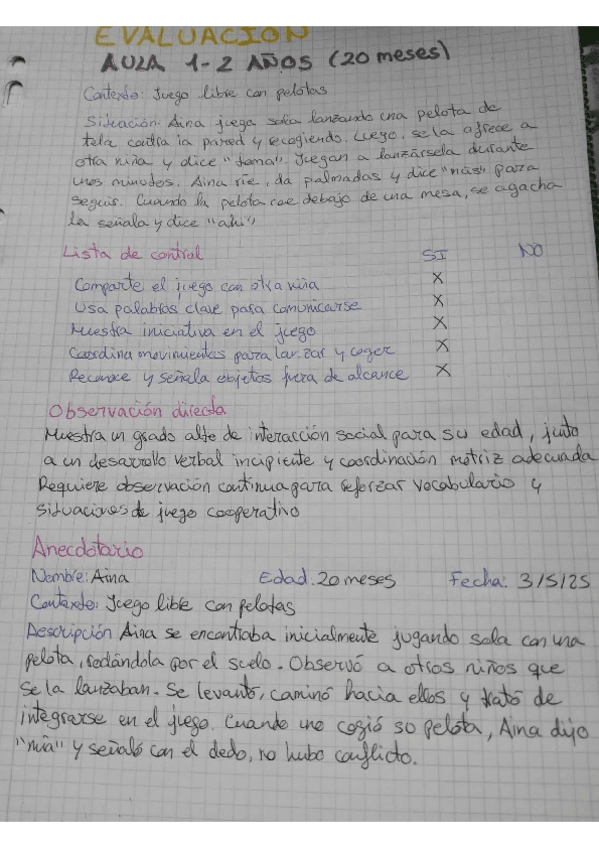 EVALUACIÓN
AULA 1-2 AÑOS (20 meses)
Contexto: Juego libre con pelotas
Situación: Aina juega sola lanzando una pelota de
tela contra la pared y recogiendo. Luego, se la ofrece a
otra niña y dice "toma". Juegan a lanzársela durante
unos minutos. Aina ríe, da palmadas y dice "más" para
seguir. Cuando la pelota cae debajo de una mesa, se agacha
la señala y dice "ahí"
Lista de control SI NO
Comparte el juego con otra niña X
Usa palabras clave para comunicarse X
Muestra iniciativa en el juego X
Coordina movimientos para lanzar y coger X
Reconoce y señala objetos fuera de alcance X
Observación directa
Muestra un grado alto de interacción social para su edad, junto
a un desarrollo verbal incipiente y coordinación motriz adecuada
Requiere observación continua para reforzar vocabulario y
situaciones de juego cooperativo
Anecdotario
Nombre: Aina Edad: 20 meses Fecha: 3/5/25
Contexto: Juego libre con pelotas
Descripción Aina se encontraba inicialmente jugando sola con una
pelota, rodándola por el suelo. Observó a otros niños que
se la lanzaban. Se levantó, caminó hacia ellos y trató de
integrarse en el juego. Cuando uno cogió su pelota, Aina dijo
"mía" y señaló con el dedo, no hubo conflicto.